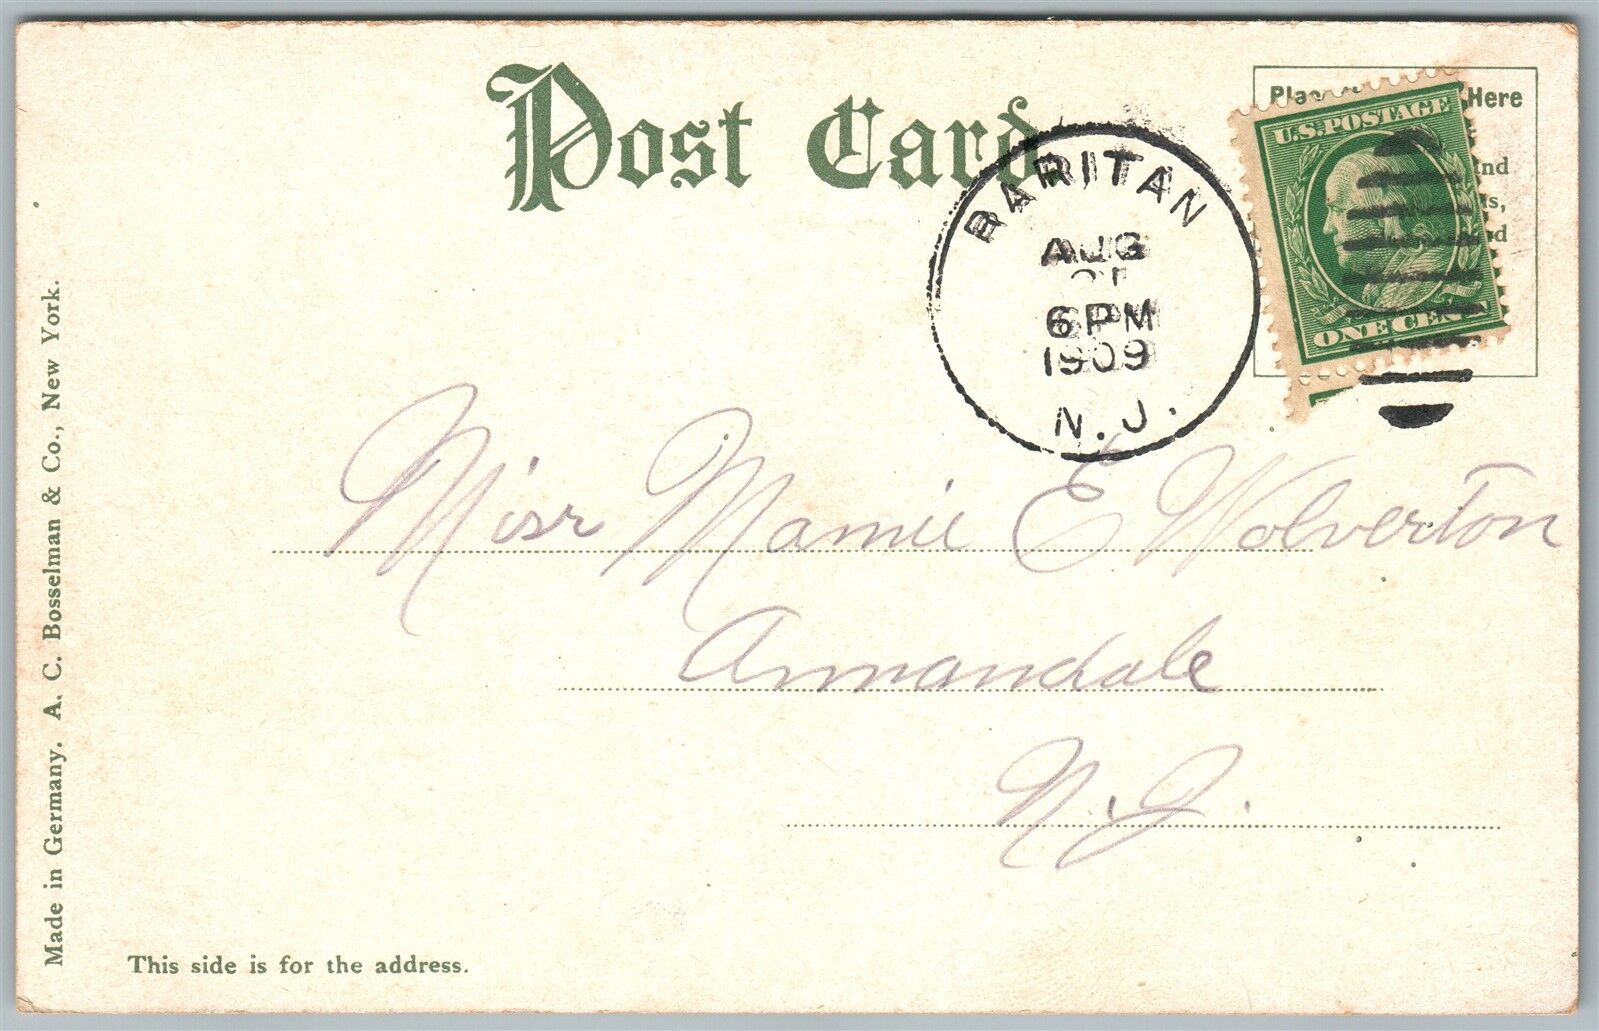 Post Card
Here
nd
ls,
nd
U.S. POSTAGE
ONE CENT
RARITAN
AUG
6 PM
1909
N.J.
Miss Mamie E Wolverton
Annandale
N.J.
Made in Germany. A. C. Bosselman & Co., New York.
This side is for the address.